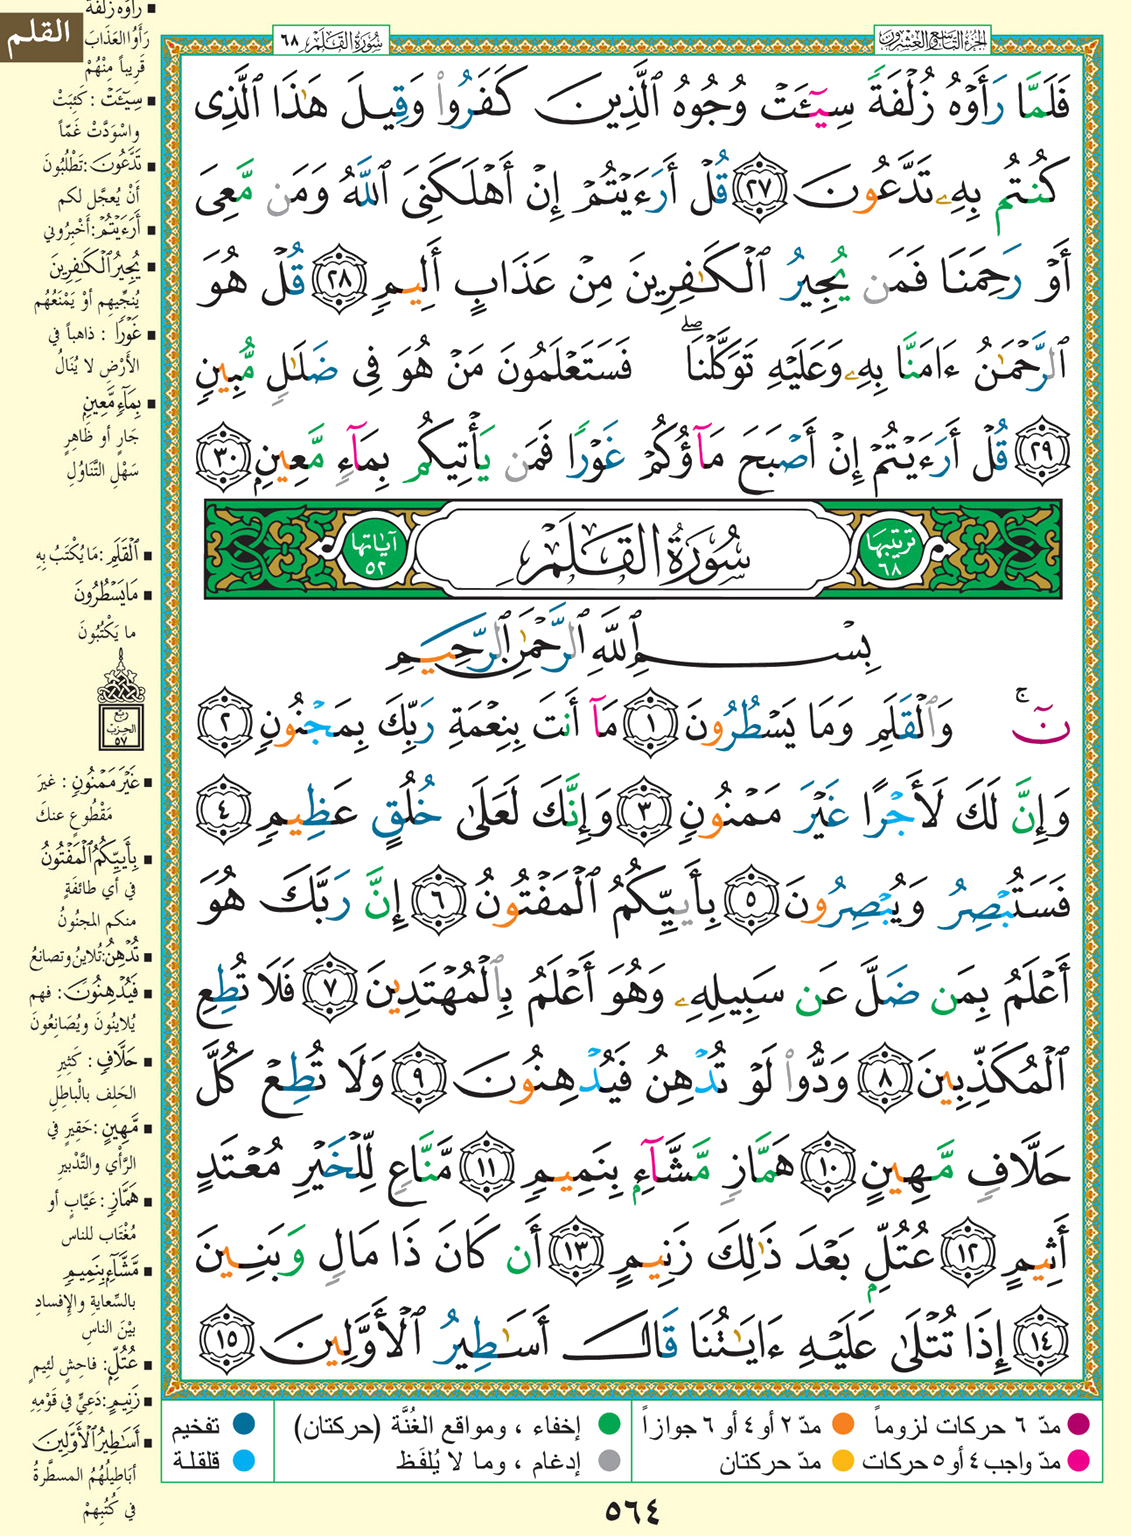 القلم
سُورَةُ القَلَمِ ٦٨
الجزء التاسع والعشرون
فَلَمَّا رَأَوْهُ زُلْفَةً سِيٓـَٔتْ وُجُوهُ ٱلَّذِينَ كَفَرُوا۟ وَقِيلَ هَٰذَا ٱلَّذِى
كُنتُم بِهِۦ تَدَّعُونَ ٢٧ قُلْ أَرَءَيْتُمْ إِنْ أَهْلَكَنِىَ ٱللَّهُ وَمَن مَّعِىَ
أَوْ رَحِمَنَا فَمَن يُجِيرُ ٱلْكَٰفِرِينَ مِنْ عَذَابٍ أَلِيمٍ ٢٨ قُلْ هُوَ
ٱلرَّحْمَٰنُ ءَامَنَّا بِهِۦ وَعَلَيْهِ تَوَكَّلْنَا ۖ فَسَتَعْلَمُونَ مَنْ هُوَ فِى ضَلَٰلٍ مُّبِينٍ
٢٩ قُلْ أَرَءَيْتُمْ إِنْ أَصْبَحَ مَآؤُكُمْ غَوْرًا فَمَن يَأْتِيكُم بِمَآءٍ مَّعِينٍ ٣٠
ترتيبها ٦٨ سُورَةُ القَلَمِ آياتها ٥٢
بِسْمِ ٱللَّهِ ٱلرَّحْمَٰنِ ٱلرَّحِيمِ
نٓ ۚ وَٱلْقَلَمِ وَمَا يَسْطُرُونَ ١ مَآ أَنتَ بِنِعْمَةِ رَبِّكَ بِمَجْنُونٍ ٢
وَإِنَّ لَكَ لَأَجْرًا غَيْرَ مَمْنُونٍ ٣ وَإِنَّكَ لَعَلَىٰ خُلُقٍ عَظِيمٍ ٤
فَسَتُبْصِرُ وَيُبْصِرُونَ ٥ بِأَييِّكُمُ ٱلْمَفْتُونُ ٦ إِنَّ رَبَّكَ هُوَ
أَعْلَمُ بِمَن ضَلَّ عَن سَبِيلِهِۦ وَهُوَ أَعْلَمُ بِٱلْمُهْتَدِينَ ٧ فَلَا تُطِعِ
ٱلْمُكَذِّبِينَ ٨ وَدُّوا۟ لَوْ تُدْهِنُ فَيُدْهِنُونَ ٩ وَلَا تُطِعْ كُلَّ
حَلَّافٍ مَّهِينٍ ١٠ هَمَّازٍ مَّشَّآءٍۭ بِنَمِيمٍ ١١ مَّنَّاعٍ لِّلْخَيْرِ مُعْتَدٍ
أَثِيمٍ ١٢ عُتُلٍّۭ بَعْدَ ذَٰلِكَ زَنِيمٍ ١٣ أَن كَانَ ذَا مَالٍ وَبَنِينَ
١٤ إِذَا تُتْلَىٰ عَلَيْهِ ءَايَٰتُنَا قَالَ أَسَٰطِيرُ ٱلْأَوَّلِينَ ١٥
رَأَوْهُ زُلْفَةً
رَأَوُا العَذَابَ
قَرِيباً مِنْهُمْ
سِيٓـَٔتْ : كَئِبَتْ
واسْوَدَّتْ غَمّاً
تَدَّعُونَ : تَطْلُبُونَ
أَنْ يُعجَّل لكم
أَرَءَيْتُمْ : أَخْبِرُوني
يُجِيرُ ٱلْكَٰفِرِينَ
يُنجِّيهِم أوْ يَمْنَعُهُم
غَوْرًا : ذاهباً في
الأَرْضِ لا يُنَالُ
بِمَآءٍ مَّعِينٍ
جَارٍ أو ظَاهِرٍ
سَهْلِ التَّنَاوُلِ
ٱلْقَلَمِ : مَا يُكْتَبُ بِهِ
مَا يَسْطُرُونَ
ما يَكْتُبُونَ
ربع الحزب ٥٧
غَيْرَ مَمْنُونٍ : غيرَ
مَقْطُوعٍ عنكَ
بِأَييِّكُمُ ٱلْمَفْتُونُ
في أي طائفَةٍ
منكم المجنُونُ
تُدْهِنُ : تُلاينُ وتصانعُ
فَيُدْهِنُونَ : فهم
يُلاينُونَ ويُصَانِعُونَ
حَلَّافٍ : كَثِيرِ
الحَلِف بالْباطِلِ
مَّهِينٍ : حَقِيرٍ في
الرَّأْيِ والتَّدْبيرِ
هَمَّازٍ : عَيَّابٍ أو
مُغْتَابٍ للناس
مَّشَّآءٍ بِنَمِيمٍ
بالسِّعايةِ والإِفسادِ
بيْنَ الناسِ
عُتُلٍّ : فاحِشٍ لئيمٍ
زَنِيمٍ : دَعِيٍّ في قَوْمِهِ
أَسَٰطِيرُ ٱلْأَوَّلِينَ
أبَاطِيلُهُمُ المسطَّرةُ
في كُتُبِهِمْ
مدّ ٦ حركات لزوماً مدّ ٢ أو ٤ أو ٦ جوازاً إخفاء ، ومواقع الغُنَّة (حركتان) تفخيم
مدّ واجب ٤ أو ٥ حركات مدّ حركتان إدغام ، وما لا يُلفَظ قلقلة
٥٦٤